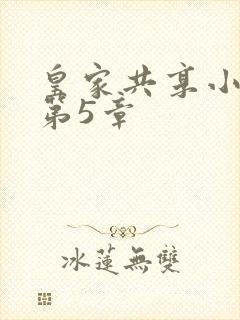 皇家共享小
第5章
冰莲無雙